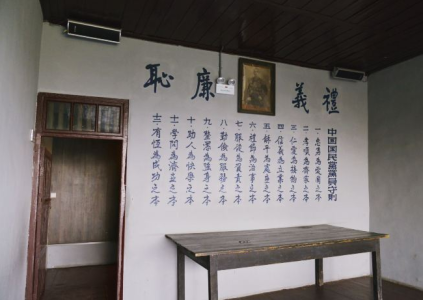 禮義廉恥
中国国民黨黨員守則
一·忠勇為愛國之本
二·孝順為齊家之本
三·仁愛為接物之本
四·信義為立業之本
五·和平為處世之本
六·禮節為治事之本
七·服從為負責之本
八·勤儉為服務之本
九·整潔為強身之本
十·助人為快樂之本
十一·學問為濟世之本
十二·有恆為成功之本